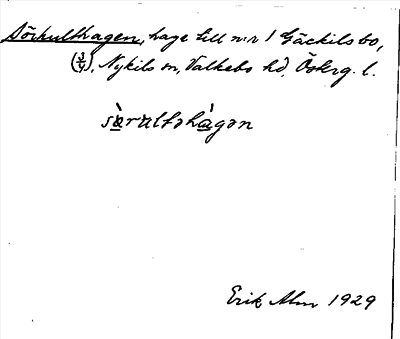 Sörhulthagen, hage till n:r 1 Gäckilsbo,
(3/4), Nykils sn, Valkebo hd, Österg. l.
sὰrɐltəhàgən
Erik Alm 1929